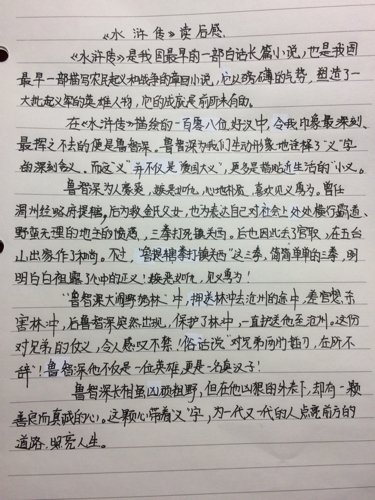 《水浒传》读后感.
《水浒传》是我国最早的一部白话长篇小说,也是我国
最早一部描写农民起义和战争的章回小说,它以磅礴的气势,塑造了一
大批起义军的英雄人物,它的成度是前所未有的.
在《水浒传》描绘的一百零八位好汉中,令我印象最深刻、
最挥之不去的便是鲁智深。鲁智深为我们生动形象地诠释了"义"字
的深刻含义.而这"义"并不仅是"爱国大义",更多是指贴近生活的"小义。
鲁智深为人豪爽,嫉恶如仇,心地朴实,喜欢见义勇为。曾任
渭州经略府提辖,后为救金氏父女,也为表达自己对社会上处处横行霸道、
野蛮无理的地主的愤慨,三拳打死镇关西。后也因此丢了官职,在五台
山出家作了和尚。不过,"鲁提辖拳打镇关西"这三拳,简简单单的三拳,明
明白白袒露了心中的正义!嫉恶如仇,见义勇为!
"鲁智深大闹野猪林"中,押送林冲去沧州的途中,差官想杀
害林冲,后鲁智深突然出现,保护了林冲,一直护送他至沧州。这份
对兄弟的仗义,令人感叹不禁!俗话说"对兄弟两肋插刀,在所不
辞"!鲁智深他不仅是一位英雄,更是一名真汉子!
鲁智深长相虽凶顽粗野,但在他凶狠的外表下,却有一颗
善良而真诚的心。这颗心带着"义"字,为一代又一代的人点亮前方的
道路.照亮人生。